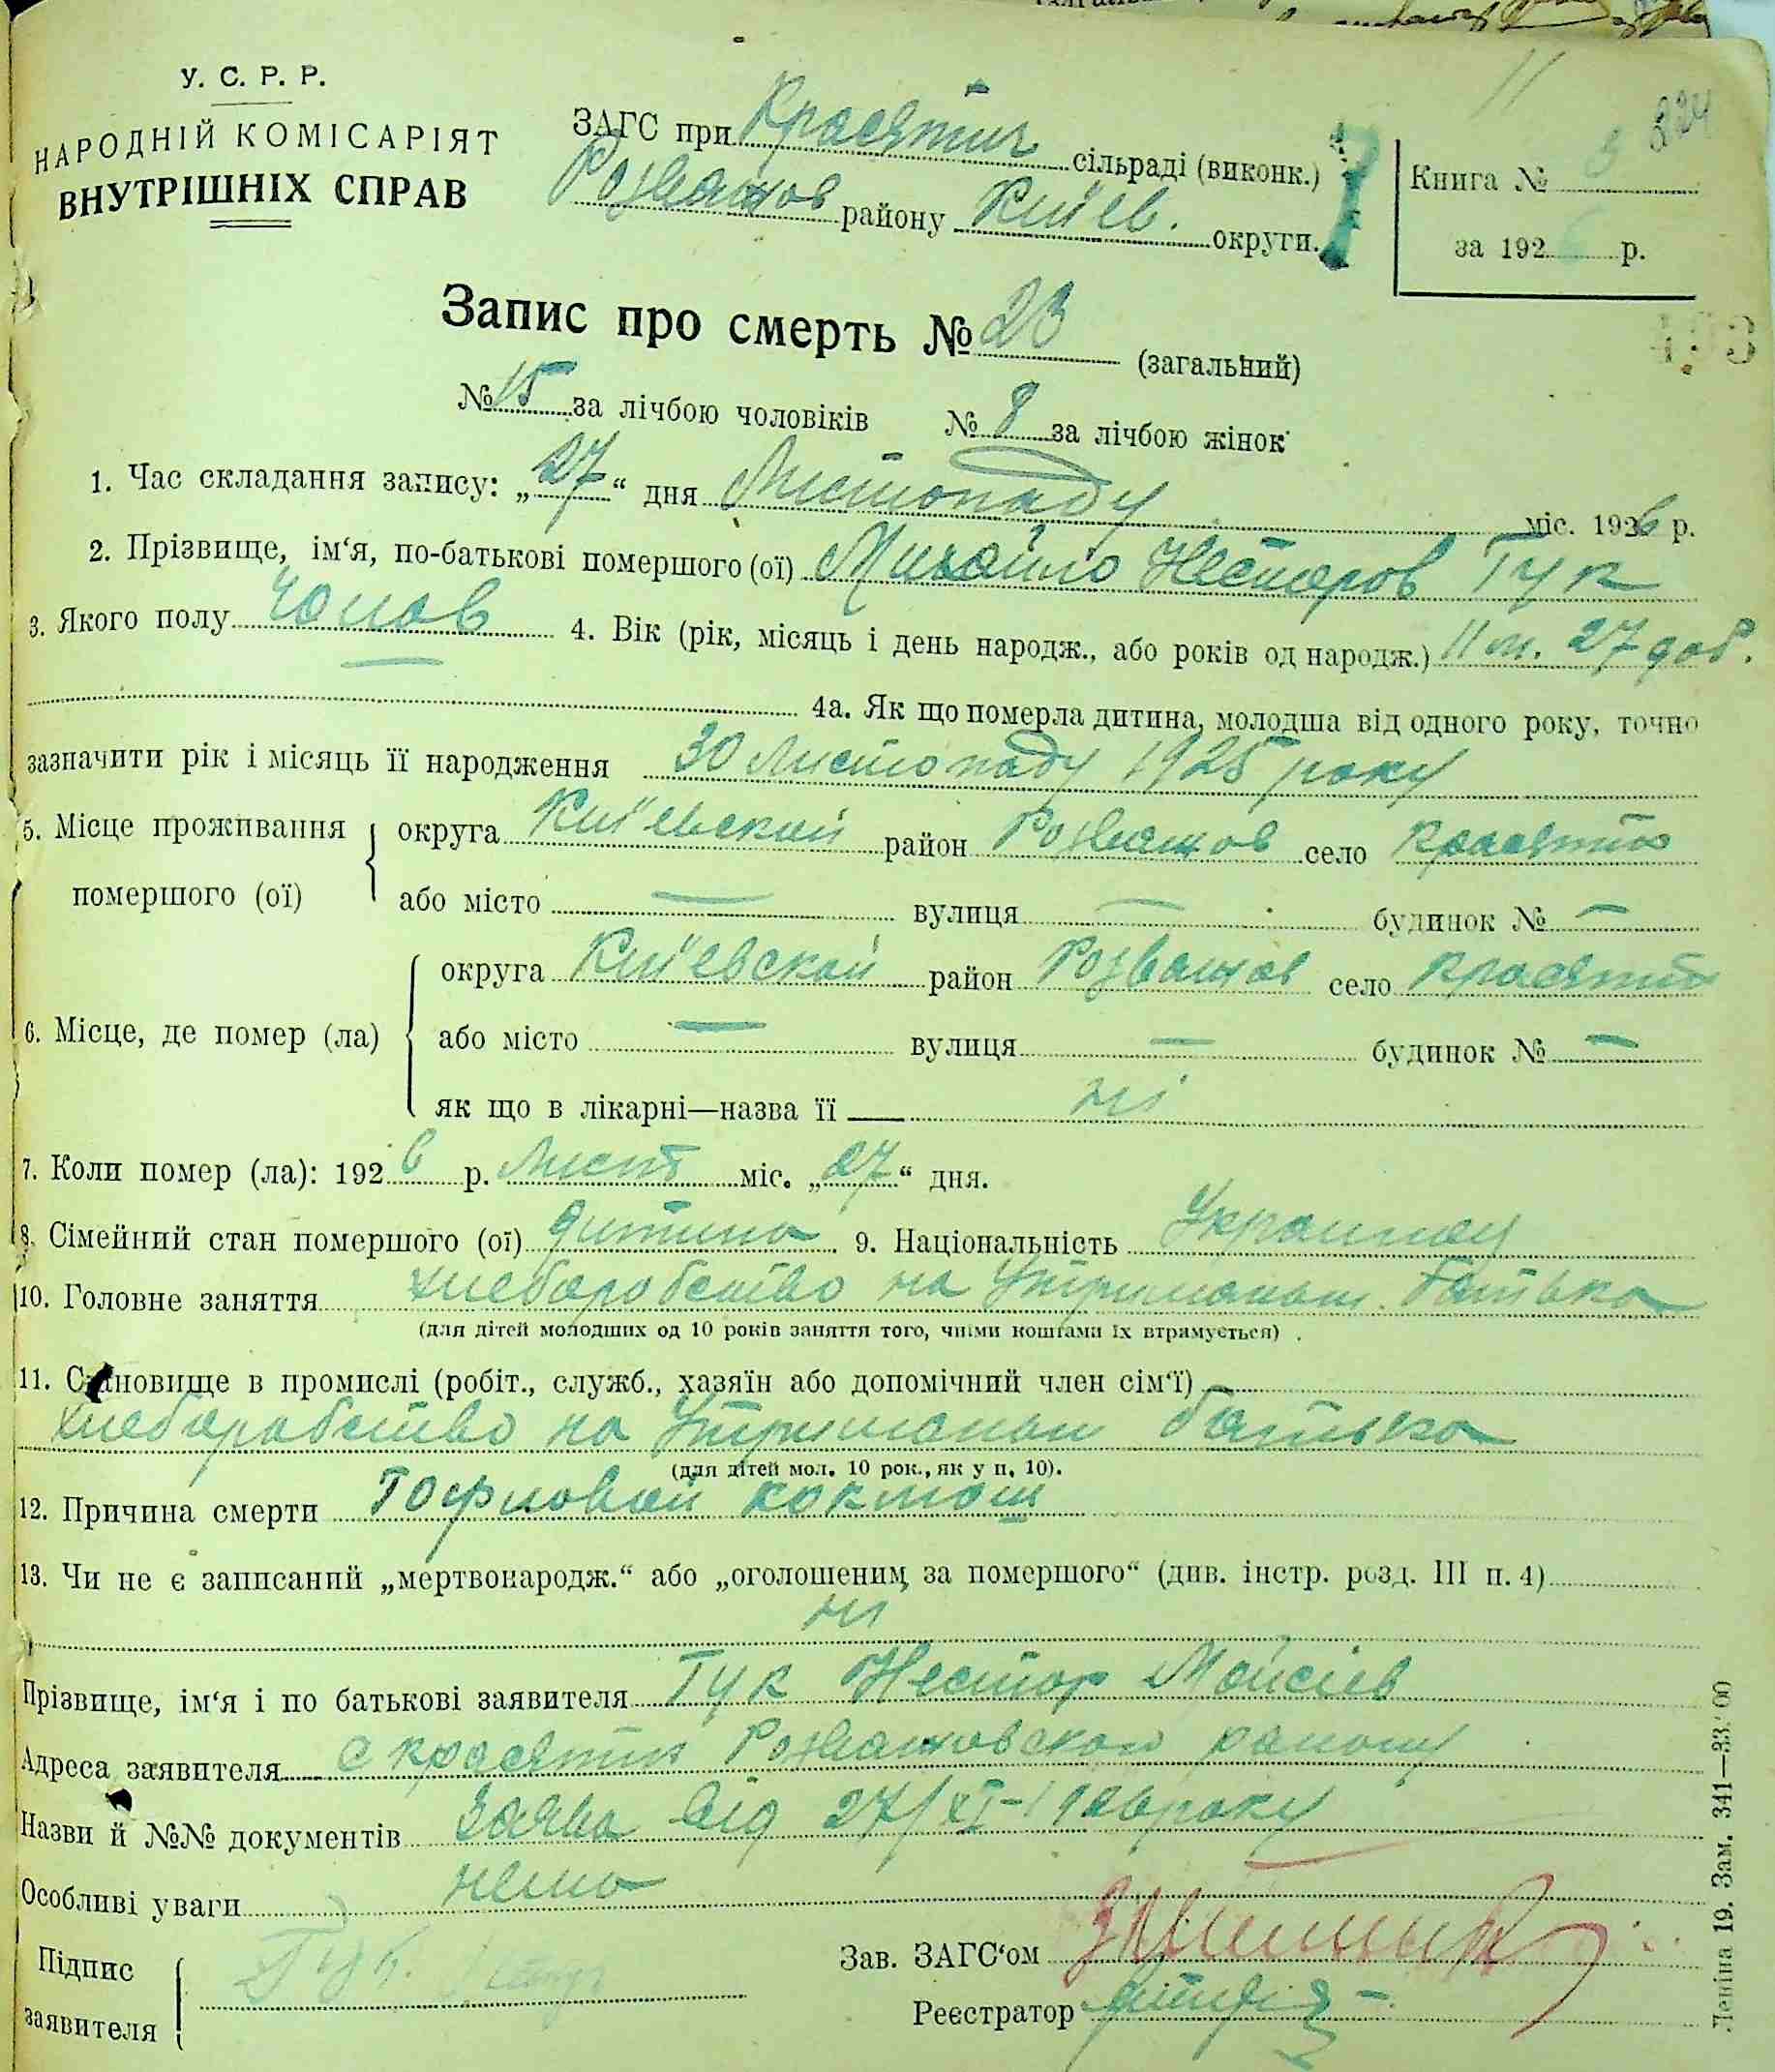 У. С. Р. Р.
НАРОДНІЙ КОМІСАРІЯТ
ВНУТРІШНІХ СПРАВ
ЗАГС при Красятич сільраді (виконк.)
Розважов району Київ. округи.
11
824
Книга № 3
за 1926 р.
Запис про смерть № 23 (загальний)
№ 15 за лічбою чоловіків № 8 за лічбою жінок
1. Час складання запису: „27“ дня Листопаду міс. 1926 р.
2. Прізвище, ім‘я, по-батькові помершого (ої) Михайло Несторов Гук
3. Якого полу Чолов 4. Вік (рік, місяць і день народж., або років од народж.) 11 м. 27 доб.
4а. Як що померла дитина, молодша від одного року, точно
зазначити рік і місяць її народження 30 Листопаду 1925 року
5. Місце проживання помершого (ої) округа Київськой район Розважов село Красятич
або місто — вулиця — будинок № —
6. Місце, де помер (ла) округа Київской район Розважов село Красятич
або місто — вулиця — будинок № —
як що в лікарні—назва її ні
7. Коли помер (ла): 1926 р. Лист міс. „27“ дня.
8. Сімейний стан помершого (ої) дитина 9. Національність Украинец
10. Головне заняття хлеборобство на Утриманьи батька
(для дітей молодших од 10 років заняття того, чиїми коштами їх втримується)
11. Становище в промислі (робіт., служб., хазяїн або допомічний член сім‘ї)
хлеборобство на Утриманьи батька
(для дітей мол. 10 рок., як у п. 10).
12. Причина смерти
13. Чи не є записаний „мертвонародж.“ або „оголошеним за помершого“ (див. інстр. розд. III п. 4)
ні
Прізвище, ім‘я і по батькові заявителя Гук Нестор Мойсіев
Адреса заявителя с Красятич Розважовской району
Назви й №№ документів Заява від 27/XI-1926 року
Особливі уваги нема
Підпис заявителя Гук
Зав. ЗАГС‘ом
Реєстратор
Леніна 19. Зам. 341—33.00